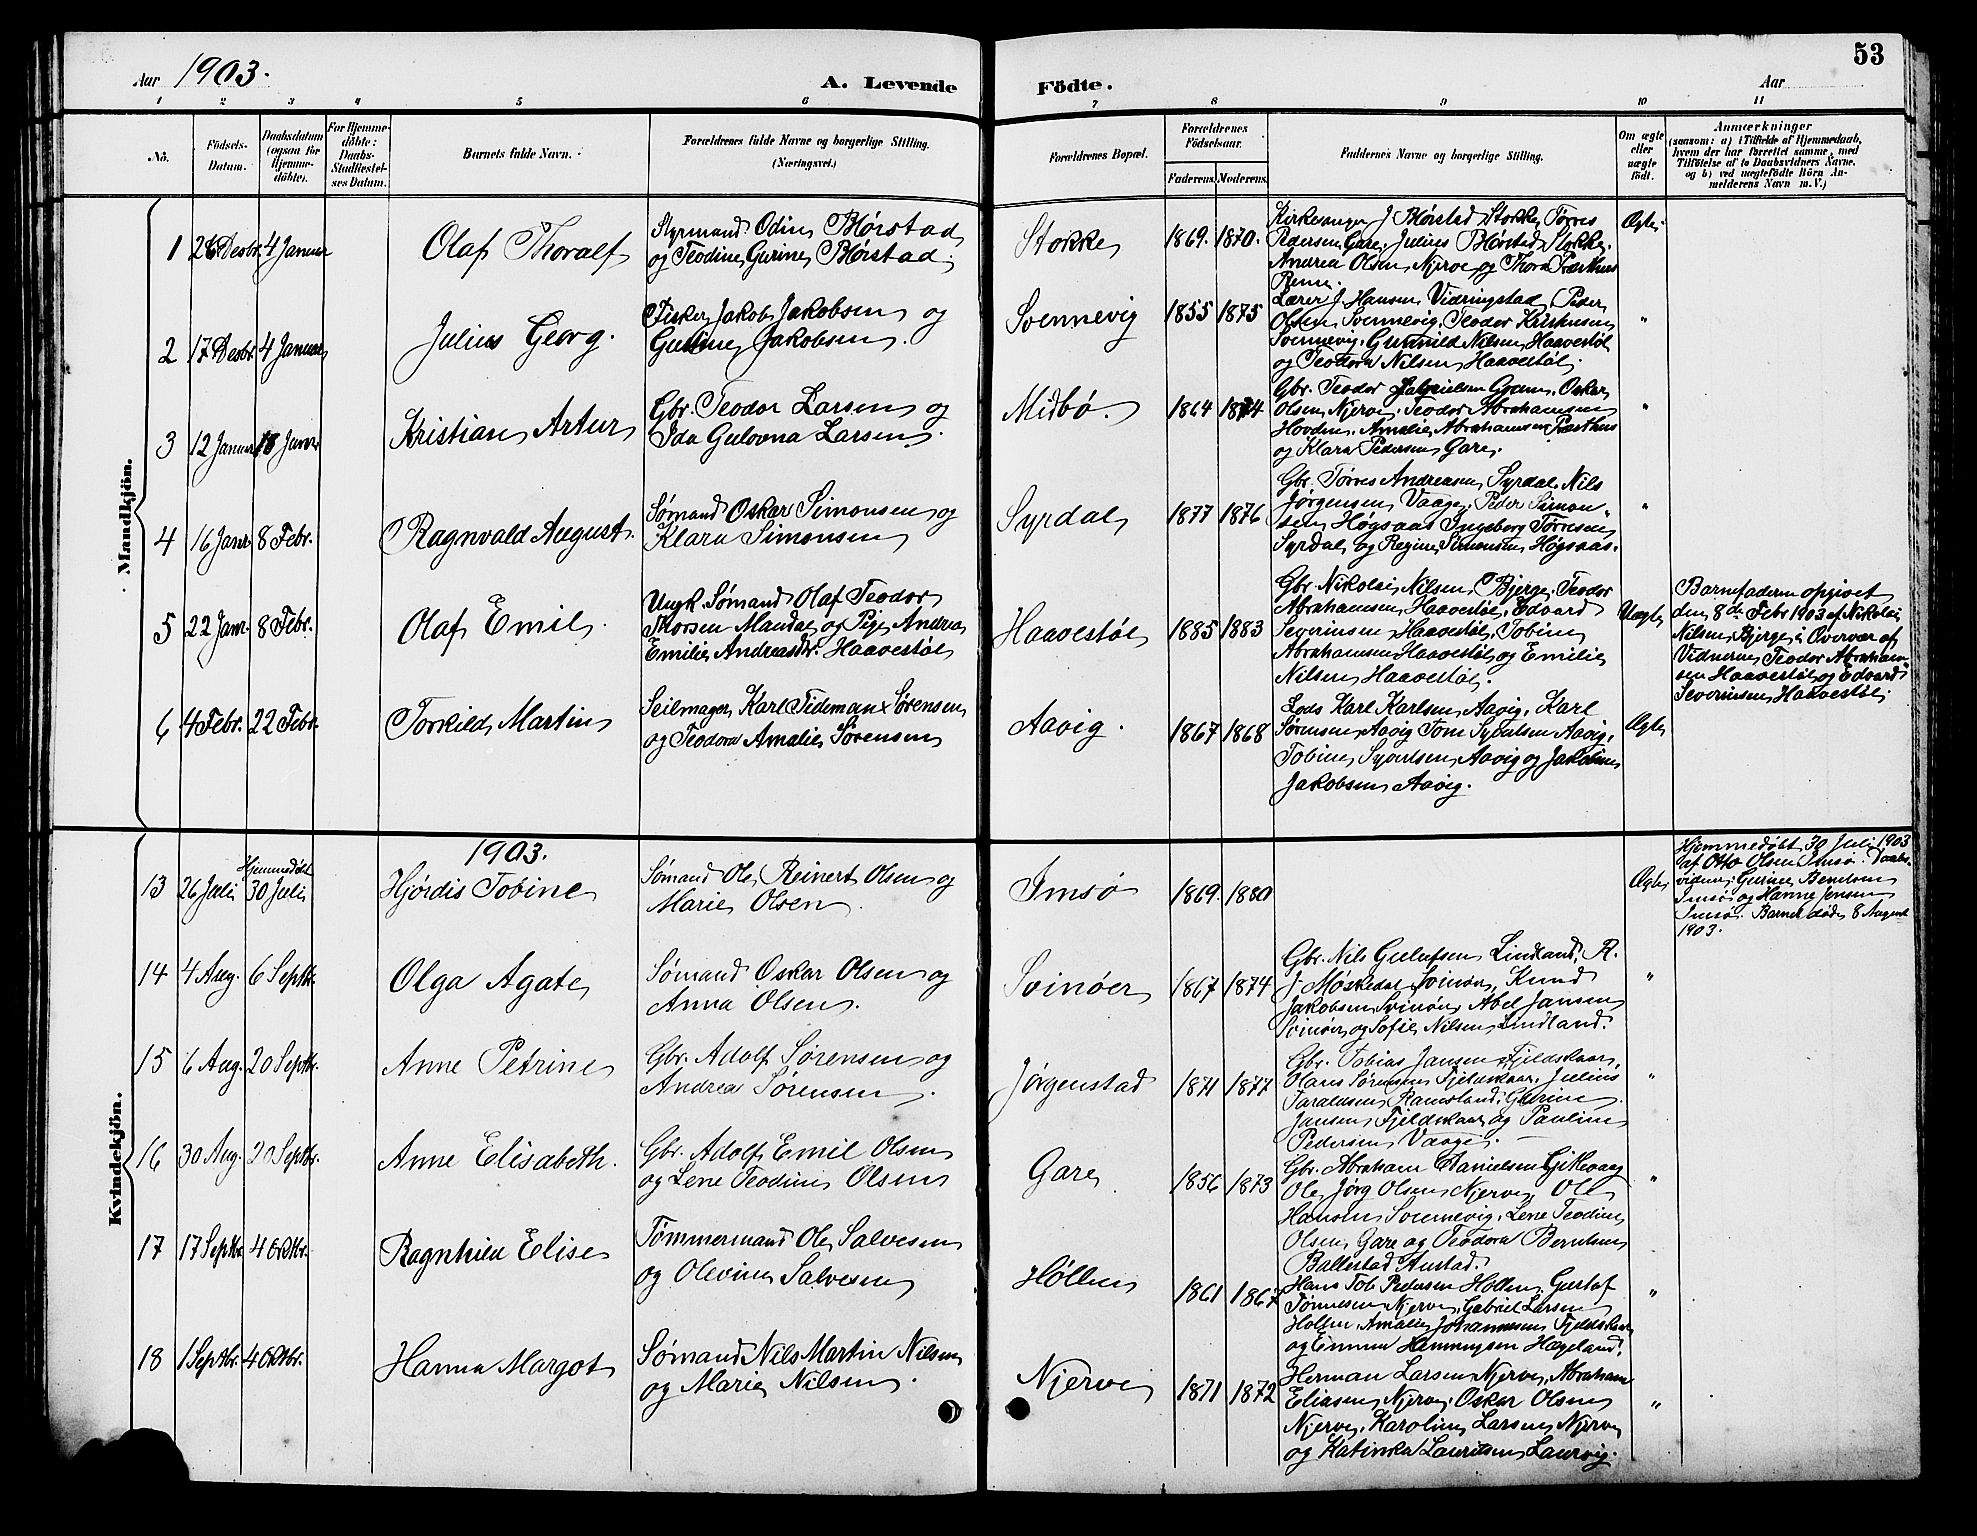 Aar 1903.
A. Levende
Födte.
Aar
53
1 2 3 4 5 6 7 8 9 10 11
No.
Födsels-
Datum.
Daabsdatum
(ogsaa for
Hjemme-
döbte).
For Hjemme-
döbte:
Daabs-
Stadfæstel-
ses Datum.
Barnets fulde Navn.
Forældrenes fulde Navne og borgerlige Stilling.
(Næringsvei.)
Forældrenes Bopæl.
Forældrenes
Födselsaar.
Faderens. Moderens.
Faddernes Navne og borgerlige Stilling.
Om ægte
eller
uægte
født.
Anmærkninger
(saasom: a) i Tilfælde af Hjemmedaab,
hvem der har forrettet samme, med
Tilföielse af to Daabsvidners Navne,
og b) ved uægtefödte Börn An-
melderens Navn m.V.)
Mandkjön.
1 26 Desbr. 4 Januar
Olaf Thoralf
Styrmand Odin Børstad
og Teodine Gurine Børstad.
Stokke
1869. 1870.
Kirkesanger J Børstad Stokke, Tørres
Pedersen Gare, Julius Børstad Stokke.
Andrea Olsen Njerve og Thora Præsthus
Ægte
2 17 Desbr. 4 Januar
Julius Georg.
Fisker Jakob Jakobsen og
Guline Jakobsen.
Svennevig
1855 1875
Lærer J. Hansen Vidringstad, Peder
Olsen Svennevig, Teodor Kristensen
Svennevig, Gunnild Nilsen Haavestøl
og Teodora Nilsen Haavestøl.
"
3 12 Januar 18 Janr
Kristian Artur
Gbr. Teodor Larsen og
Ida Gulovna Larsen.
Midbø.
1864 1874
Gbr. Teodor Gabrielsen Gram, Oskar
Olsen Njerve, Teodor Abrahamsen
Hovden, Amalie Abrahamsen Præsthus
og Klara Pedersen Gare.
"
4 16 Janr 8 Febr.
Ragnvald August.
Sømand Oskar Simonsen og
Klara Simonsen
Syrdal
1877 1876
Gbr. Tørres Andreasen Syrdal, Nils
Jørgensen Vaage, Peder Simon-
sen Høgsaas Ingeborg Tørresen
Syrdal og Regine Simonsen Høgsaas.
"
5 22 Janr. 8 Febr.
Olaf Emil.
Ungk. Sømand Olaf Teodor
Thorsen Mandal og Pige Andrea
Emilie Andreasdtr. Haavestøl
Haavestøl
1885 1883
Gbr. Nikolai Nilsen Bjerge, Teodor
Abrahamsen Haavestøl, Edvard
Severinsen Haavestøl, Tobine
Abrahamsen Haavestøl og Emilie
Nilsen Haavestøl.
Uægte
Barnefaderen opgivet
den 8de Febr 1903 af Nikolai
Nilsen Bjerge i Overvær af
Vidnerne Teodor Abraham-
sen Haavestøl og Edvard
Severinsen Haavestøl.
6 4 Febr. 22 Febr.
Torkild Martin
Seilmager Karl Tideman Sørensen
og Teodora Amalie Sørensen
Aavig.
1867 1868
Lods Karl Karlsen Aavig, Karl
Sørensen Aavig Tom Syvertsen Aavig,
Tobine Syvertsen Aavig og Jakobine
Jakobsen Aavig.
Ægte
Kvindekjön.
1903.
13 26 Juli Hjemmedøbt
30 Juli
Hjørdis Tobine
Sømand Ole Reinert Olsen og
Marie Olsen.
Imsø
1869. 1880
Ægte
Hjemmedøbt 30 Juli 1903
af Otto Olsen Imsø. Daabs-
vidner: Gurine Bentsen
Imsø og Hanne Jensen
Imsø. Barnet døde 8 August
1903.
14 4 Aug. 6 Septbr.
Olga Agate
Sømand Oskar Olsen og
Anna Olsen.
Svinøer
1867 1874
Gbr. Nils Gulufsen Lindland, R.
J. Møskedal Svinør, Knud
Jakobsen Svinør, Abel Jansen
Svinør og Sofie Nilsen Lindland.
"
15 6 Aug. 20 Septbr.
Anne Petrine
Gbr. Adolf Sørensen og
Andrea Sørensen.
Jørgenstad
1871 1877
Gbr. Tobias Jansen Fjeldskaar,
Olaus Sørensen Fjeldskaar, Julius
Taraldsen Ramsland, Gurine
Jansen Fjeldskaar og Pauline
Pedersen Vaage.
"
16 30 Aug. 20 Septbr.
Anne Elisabeth.
Gbr. Adolf Emil Olsen
og Lene Teodine Olsen
Gare
1856 1873
Gbr. Abraham Danielsen Gjitevaag
Ole Jørg Olsen Njerve, Ole
Hansen Svennevig, Lene Teodine
Olsen Gare og Teodora Berntsen
Ballestad Austad.
"
17 17 Septbr. 4 Oktbr.
Ragnhild Elise
Tømmermand Ole Salvesen
og Olevine Salvesen
Høllen
1861 1867
Hans Tob. Pedersen Høllen, Gustaf
Tønnesen Njerve, Gabriel Larsen
Høllen, Amalie Johannesen Fjeldskaar
og Emma Hemmingsen Hægeland.
"
18 1 Septbr. 4 Oktbr.
Hanna Margot
Sømand Nils Martin Nilsen
og Marie Nilsen.
Njerve
1871 1872
Herman Larsen Njerve, Abraham
Eliasen Njerve, Oskar Olsen
Njerve, Karoline Larsen Njerve
og Katinka Lauritsen Laurvig.
"